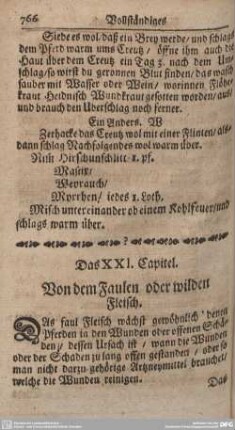 766 Vollständiges
Siede es wol / daß ein Brey werde / und schlags
dem Pferd warm ums Creutz / öffne ihm auch die
Haut über dem Creutz ein Tag 3. nach dem Um-
schlag / so wirst du geronnen Blut finden / das wasch
sauber mit Wasser oder Wein / worinnen Flöh-
kraut Heidnisch Wundkraut gesotten worden / aus /
und brauch den Uberschlag noch ferner.
Ein Anders. W
Zerhacke das Creutz wol mit einer Flinten / als-
dann schlag Nachfolgendes wol warm über.
Nim Hirschunschlitt 1. pf.
Mastix /
Weyrauch /
Myrrhen / iedes 1. Loth.
Misch untereinander ob einem Kohlfeuer / und
schlags warm über.
Das XXI. Capitel.
Von dem Faulen oder wilden
Fleisch.
Das faul Fleisch wächst gewöhnlich denen
Pferden in den Wunden oder offenen Schä-
den / dessen Ursach ist / wann die Wunden
oder der Schaden zu lang offen gestanden / oder so
man nicht darzu gehörige Artzneymittel brauchet /
welche die Wunden reinigen.
Das